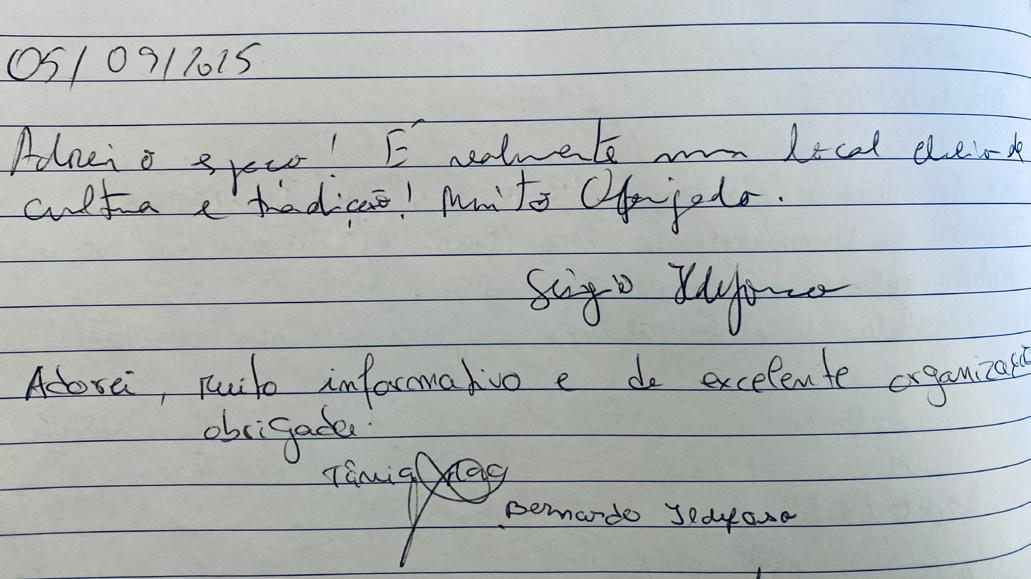 05/09/2025
Adorei o espaço! É realmente um local cheio de
cultura e tradição! Muito Obrigado.
Sérgio Ildefonso
Adorei, muito informativo e de excelente organização
obrigada.
Tânia
Bernardo Ildefonso